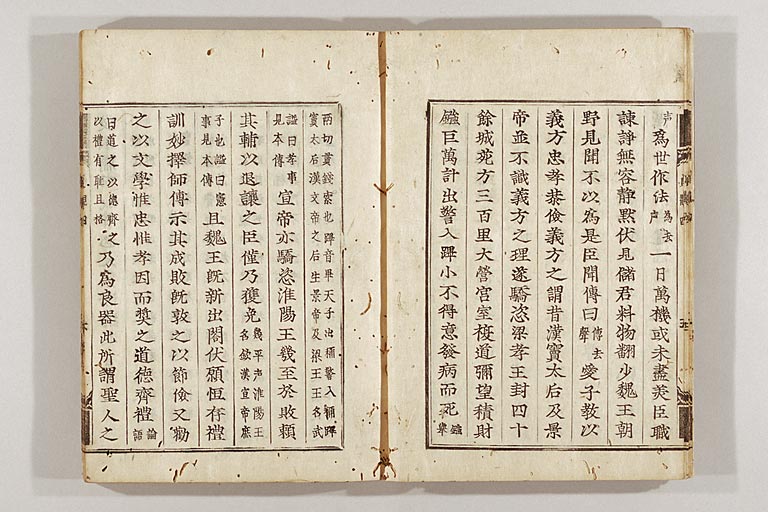 声為世作法為去声一日萬機或未盡美臣職
諫諍無容靜默伏見儲君料物翻少魏王朝
野見聞不以為是臣聞傳曰傳去聲愛子教以
義方忠孝恭儉義方之謂昔漢竇太后及景
帝並不識義方之理遂驕恣梁孝王封四十
餘城苑方三百里大營宮室複道彌望積財
鏹巨萬計出警入蹕小不得意發病而死鏹舉
兩切貫錢索也蹕音畢天子出稱警入稱蹕
竇太后漢文帝之后生景帝及梁王王名武
謚曰孝事見本傳宣帝亦驕恣淮陽王幾至於敗賴
其輔以退讓之臣僅乃獲免幾平声淮陽王名欽漢宣帝庶
子也謚曰憲事見本傳且魏王既新出閤伏願恒存禮
訓妙擇師傅示其成敗既敦之以節儉又勸
之以文學惟忠惟孝因而奬之道德齊禮論語
曰道之以德齊之以禮有恥且格乃為良器此所謂聖人之